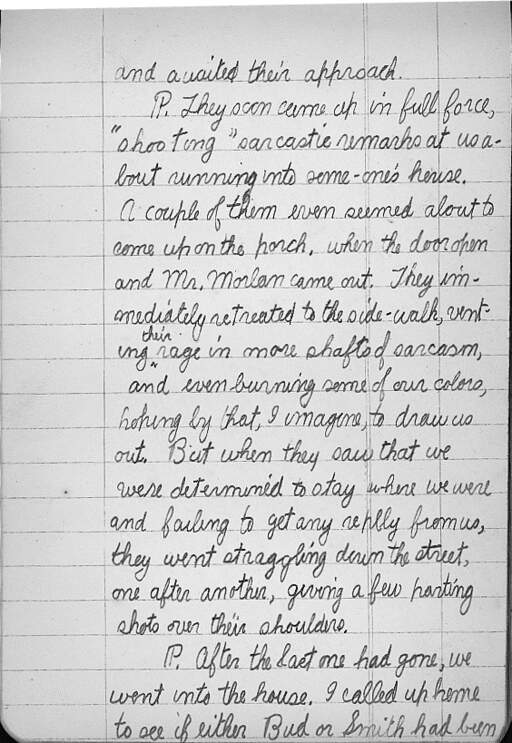 and awaited their approach.
P. They soon came up in full force,
"shooting" sarcastic remarks at us a-
bout running into some-one's house.
A couple of them even seemed about to
come up on the porch, when the door open
and Mr. Morlan came out. They im-
mediately retreated to the side-walk, vent-
their
ing rage in more shafts of sarcasm,
and even burning some of our colors,
hoping by that, I imagine, to draw us
out. But when they saw that we
were determined to stay where we were
and failing to get any replly from us,
they went straggling down the street,
one after another, giving a few parting
shots over their shoulders.
P. After the last one had gone, we
went into the house. I called up home
to see if either Bud or Smith had been